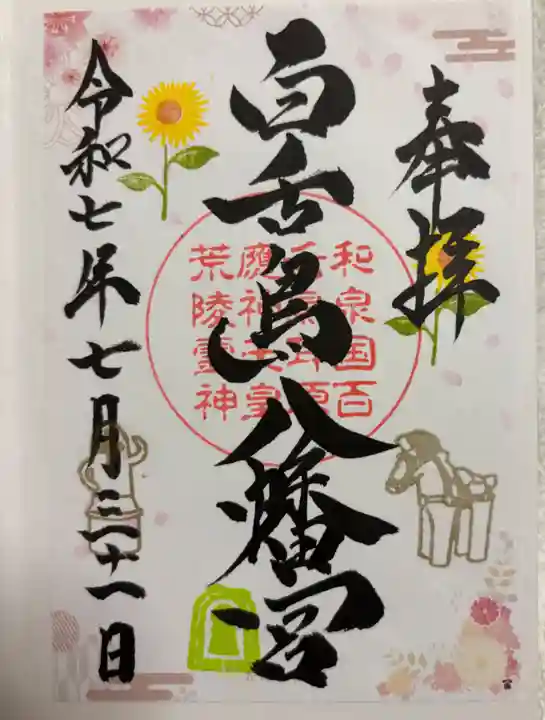 奉拝
百舌鳥八幡宮
和泉国百
舌鳥耳原
應神天皇
荒陵霊神
令和七年七月三十一日